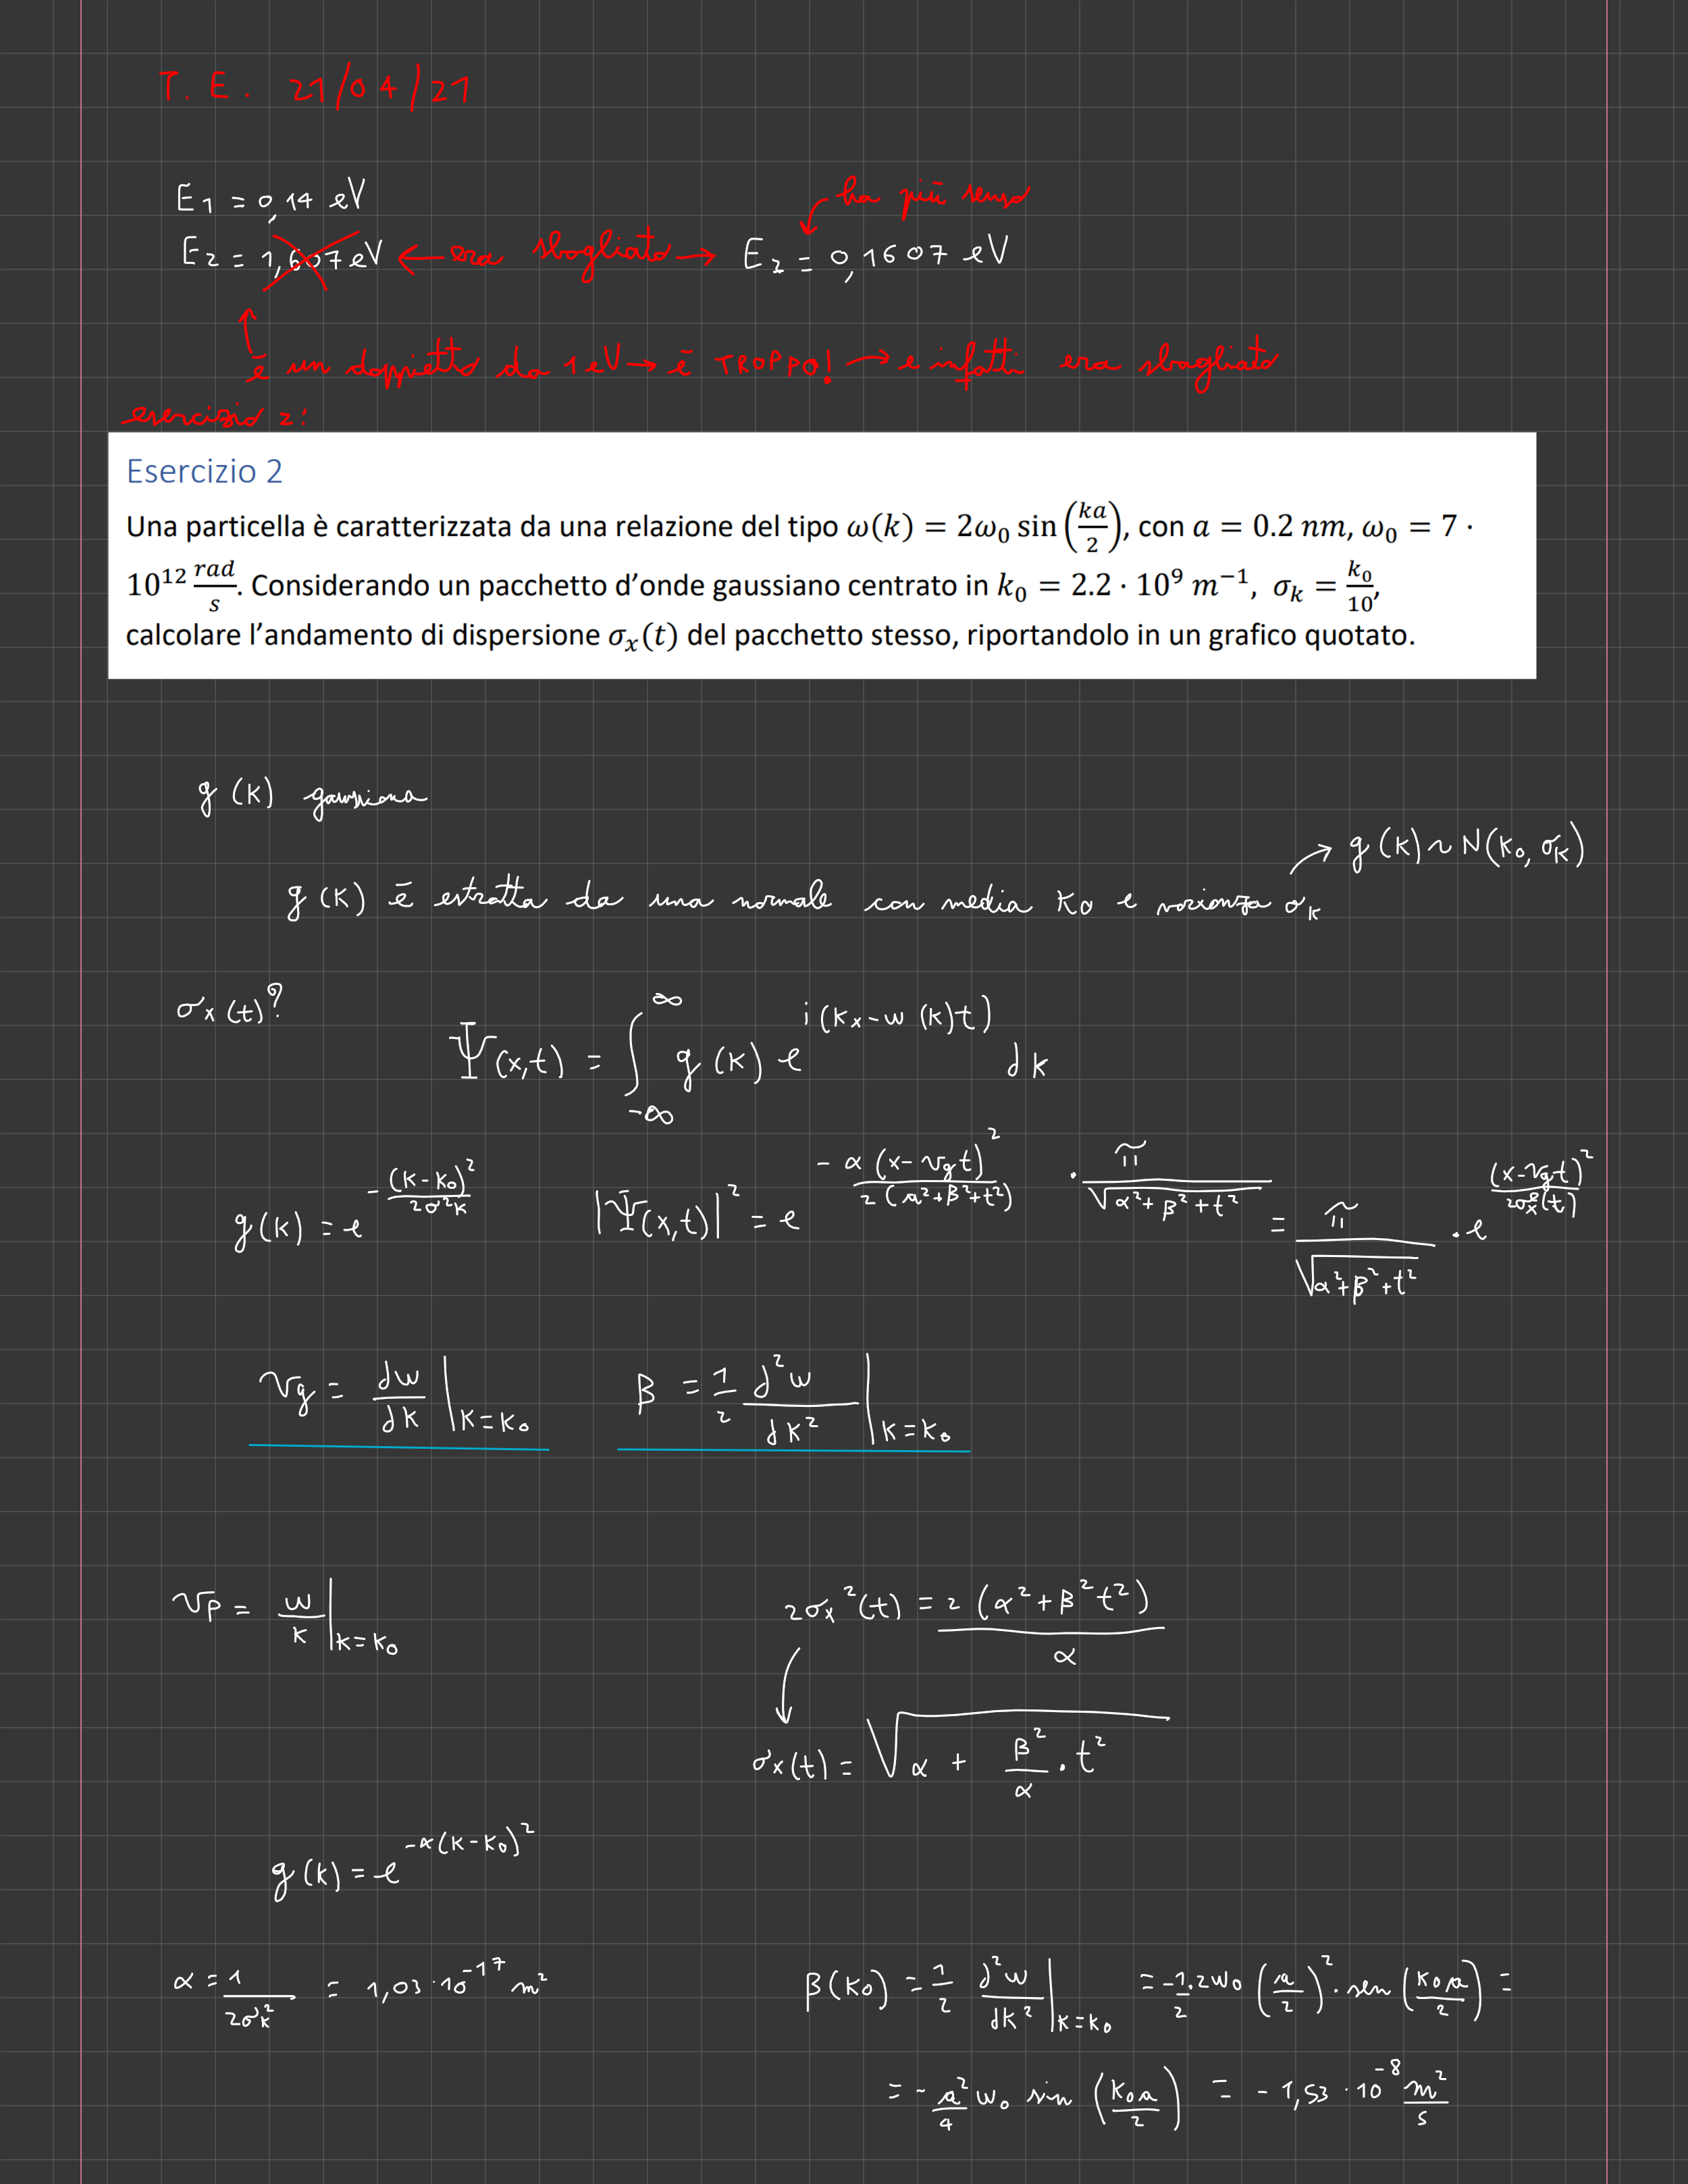 T. E. 21/04/21
E1 = 0,14 eV
ha più senso
E2 = 1,607 eV ← era sbagliato → E2 = 0,1607 eV
è un doppietto da 1 eV → è TROPPO! → e infatti era sbagliato
esercizio 2:
Esercizio 2
Una particella è caratterizzata da una relazione del tipo ω(k) = 2ω₀ sin(ka/2), con a = 0.2 nm, ω₀ = 7 ·
10¹² rad/s. Considerando un pacchetto d'onde gaussiano centrato in k₀ = 2.2 · 10⁹ m⁻¹, σₖ = k₀/10,
calcolare l'andamento di dispersione σₓ(t) del pacchetto stesso, riportandolo in un grafico quotato.
g(k) gaussiana
→ g(k) ~ N(k₀, σₖ)
g(k) è estratta da una normale con media k₀ e varianza σₖ
σₓ(t)?
Ψ(x,t) = ∫_{-∞}^{∞} g(k) e^{i(kx-w(k)t)} dk
g(k) = e^{-(k-k₀)²/2σ²k} |Ψ(x,t)|² = e^{-α(x-vgt)²/2(a²+β²+t²)} · π/√(α²+β²+t²) = π/√(α²+β²+t²) · e^{(x-vgt)²/2σₓ²(t)}
vg = dw/dk |k=k₀ β = 1/2 d²w/dk² |k=k₀
vp = w/k |k=k₀ 2σₓ²(t) = 2(α²+β²t²)/α
σₓ(t) = √(α + β²/α · t²)
g(k) = e^{-α(k-k₀)²}
α = 1/2σₖ² = 1,03·10⁻¹⁷ m² β(k₀) = 1/2 d²w/dk² |k=k₀ = -1/2·2w₀ (a/2)² · sen(k₀a/2) =
= -a²/4 w₀ sin(k₀a/2) = -1,53 · 10⁻⁸ m²/s